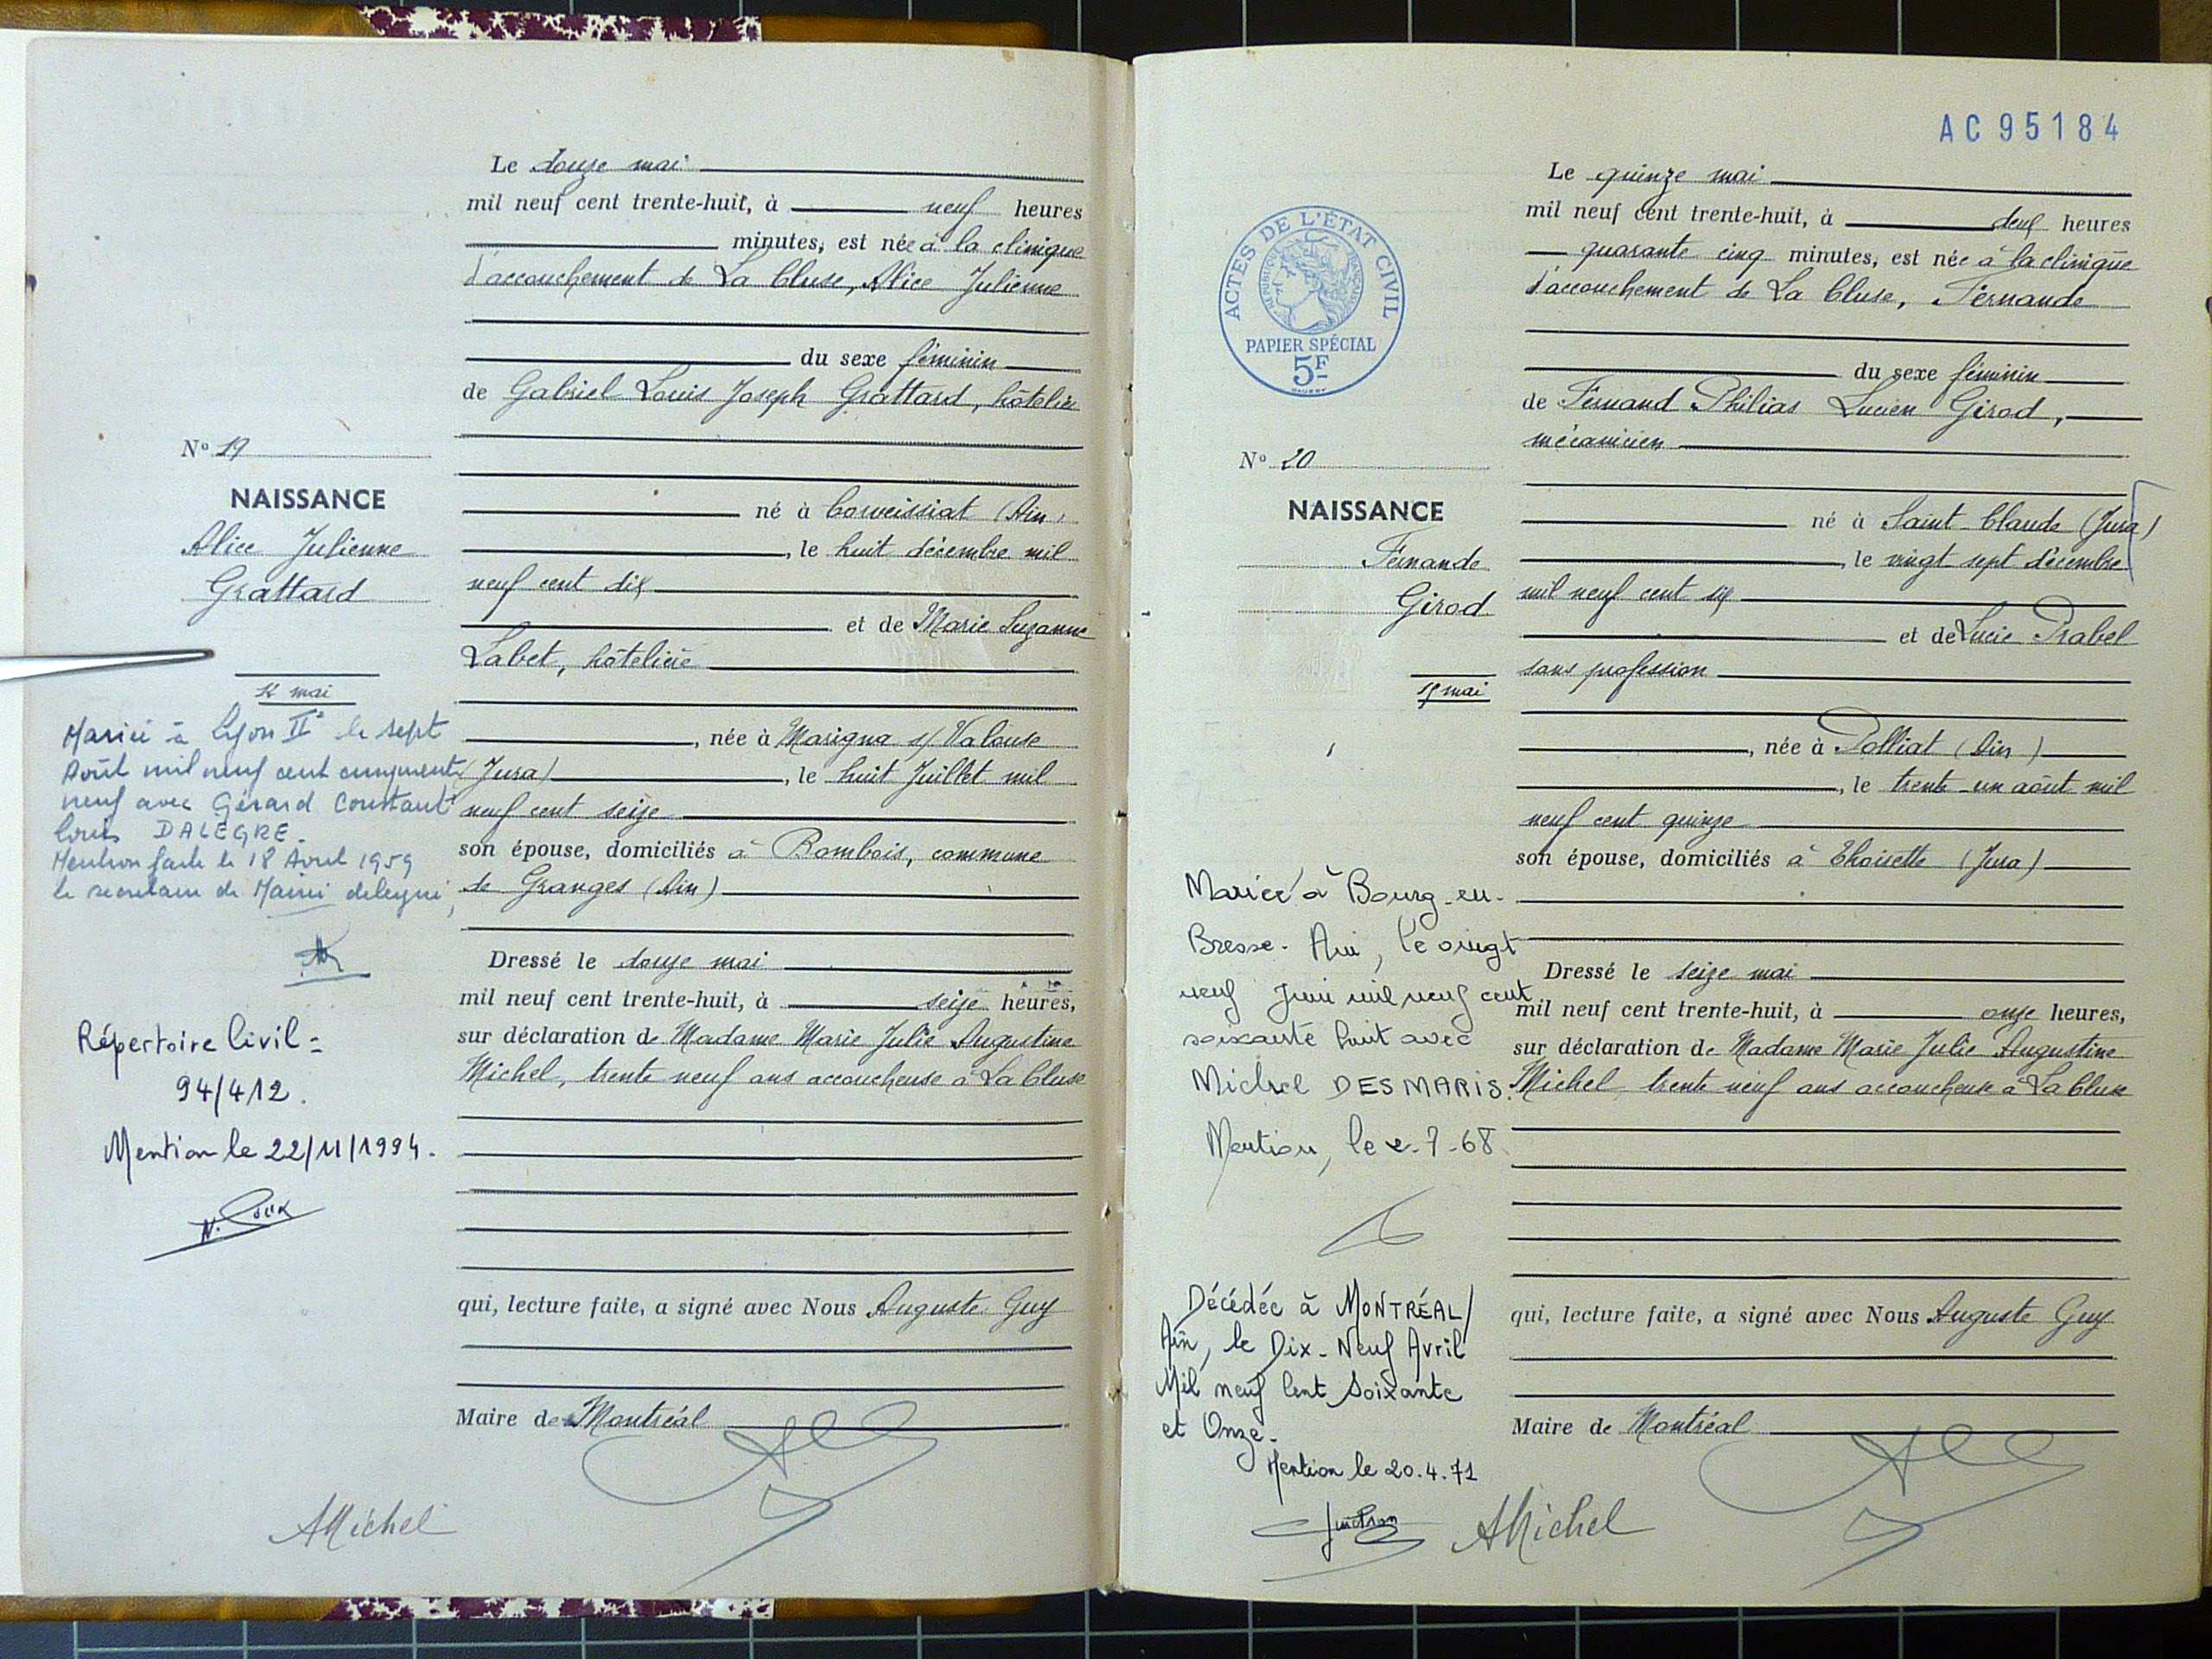 Le douze mai
mil neuf cent trente-huit, à neuf heures
minutes, est née à la clinique
d'accouchement de La Cluse, Alice Julienne
du sexe féminin
de Gabriel Louis Joseph Grattard, hôtelier
né à Corveissiat (Ain)
, le huit décembre mil
neuf cent dix
et de Marie Suzanne
Labet, hôtelière
, née à Marigna s/ Valouse
(Jura) , le huit Juillet mil
neuf cent seize
son épouse, domiciliés à Bombois, commune
de Granges (Ain)
Dressé le douze mai
mil neuf cent trente-huit, à seize heures,
sur déclaration de Madame Marie Julie Augustine
Michel, trente neuf ans accoucheuse à La Cluse
qui, lecture faite, a signé avec Nous Auguste Guy
Maire de Montréal
AMichel
No 19
NAISSANCE
Alice Julienne
Grattard
12 mai
Mariée à Lyon IIe le sept
Août mil neuf cent cinquante
neuf avec Gérard Constant
Louis DALEGRE.
Mention faite le 18 Aout 1959
le secretaire de Mairie delegué,
Répertoire Civil =
94/412.
Mention le 22/11/1994.
N. Roux
AC 95184
Le quinze mai
mil neuf cent trente-huit, à deux heures
quarante cinq minutes, est née à la clinique
d'accouchement de La Cluse, Fernande
du sexe féminin
de Fernand Philias Lucien Girod,
mécanicien
né à Saint Claude (Jura)
, le vingt sept décembre
mil neuf cent six
et de Lucie Prabel
sans profession
, née à Polliat (Ain)
, le trente un août mil
neuf cent quinze
son épouse, domiciliés à Thoirette (Jura)
Dressé le seize mai
mil neuf cent trente-huit, à onze heures,
sur déclaration de Madame Marie Julie Augustine
Michel, trente neuf ans accoucheuse à La Cluse
qui, lecture faite, a signé avec Nous Auguste Guy
Maire de Montréal
AMichel
ACTES DE L'ÉTAT CIVIL
RÉPUBLIQUE FRANÇAISE
PAPIER SPÉCIAL
5F
No 20
NAISSANCE
Fernande
Girod
15 mai
Mariée à Bourg-en-
Bresse - Ain, le vingt
neuf Juin mil neuf cent
soixante huit avec
Michel DESMARIS.
Mention, le 2-7-68
Décédée à MONTRÉAL/
Ain, le Dix-Neuf Avril
Mil neuf Cent Soixante
et Onze.
Mention le 20.4.71